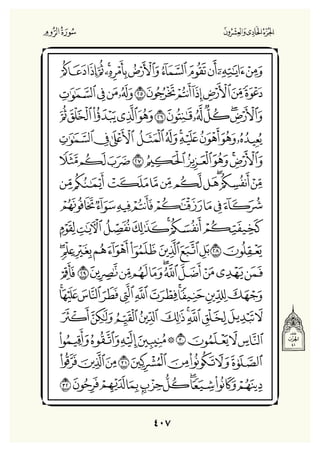 الجُزْءُ الحَادِي وَالعِشْرُونَ
سُورَةُ الرُّومِ
وَمِنْ ءَايَٰتِهِۦٓ أَن تَقُومَ ٱلسَّمَآءُ وَٱلْأَرْضُ بِأَمْرِهِۦ ثُمَّ إِذَا دَعَاكُمْ
دَعْوَةً مِّنَ ٱلْأَرْضِ إِذَآ أَنتُمْ تَخْرُجُونَ ٢٥ وَلَهُۥ مَن فِى ٱلسَّمَٰوَٰتِ
وَٱلْأَرْضِ كُلٌّ لَّهُۥ قَٰنِتُونَ ٢٦ وَهُوَ ٱلَّذِى يَبْدَؤُا۟ ٱلْخَلْقَ ثُمَّ
يُعِيدُهُۥ وَهُوَ أَهْوَنُ عَلَيْهِ وَلَهُ ٱلْمَثَلُ ٱلْأَعْلَىٰ فِى ٱلسَّمَٰوَٰتِ
وَٱلْأَرْضِ وَهُوَ ٱلْعَزِيزُ ٱلْحَكِيمُ ٢٧ ضَرَبَ لَكُم مَّثَلًا
مِّنْ أَنفُسِكُمْ هَل لَّكُم مِّن مَّا مَلَكَتْ أَيْمَٰنُكُم مِّن
شُرَكَآءَ فِى مَا رَزَقْنَٰكُمْ فَأَنتُمْ فِيهِ سَوَآءٌ تَخَافُونَهُمْ
كَخِيفَتِكُمْ أَنفُسَكُمْ كَذَٰلِكَ نُفَصِّلُ ٱلْءَايَٰتِ لِقَوْمٍ
يَعْقِلُونَ ٢٨ بَلِ ٱتَّبَعَ ٱلَّذِينَ ظَلَمُوٓا۟ أَهْوَآءَهُم بِغَيْرِ عِلْمٍ
فَمَن يَهْدِى مَنْ أَضَلَّ ٱللَّهُ وَمَا لَهُم مِّن نَّٰصِرِينَ ٢٩ فَأَقِمْ
وَجْهَكَ لِلدِّينِ حَنِيفًا فِطْرَتَ ٱللَّهِ ٱلَّتِى فَطَرَ ٱلنَّاسَ عَلَيْهَا
لَا تَبْدِيلَ لِخَلْقِ ٱللَّهِ ذَٰلِكَ ٱلدِّينُ ٱلْقَيِّمُ وَلَٰكِنَّ أَكْثَرَ
ٱلنَّاسِ لَا يَعْلَمُونَ ٣٠ ۞ مُنِيبِينَ إِلَيْهِ وَٱتَّقُوهُ وَأَقِيمُوا۟
ٱلصَّلَوٰةَ وَلَا تَكُونُوا۟ مِنَ ٱلْمُشْرِكِينَ ٣١ مِنَ ٱلَّذِينَ فَرَّقُوا۟
دِينَهُمْ وَكَانُوا۟ شِيَعًا كُلُّ حِزْبٍۭ بِمَا لَدَيْهِمْ فَرِحُونَ ٣٢
٤٠٧